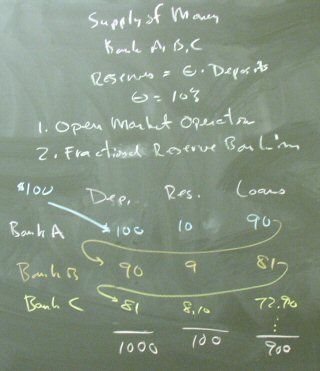 Supply of Money
Bank A, B, C
Reserves = Θ · Deposits
Θ = 10%
1. Open Market Operation
2. Fractional Reserve Banking
$100 Dep. Res. Loans
Bank A 100 10 90
Bank B 90 9 81
Bank C 81 8.10 72.90
1000 100 900